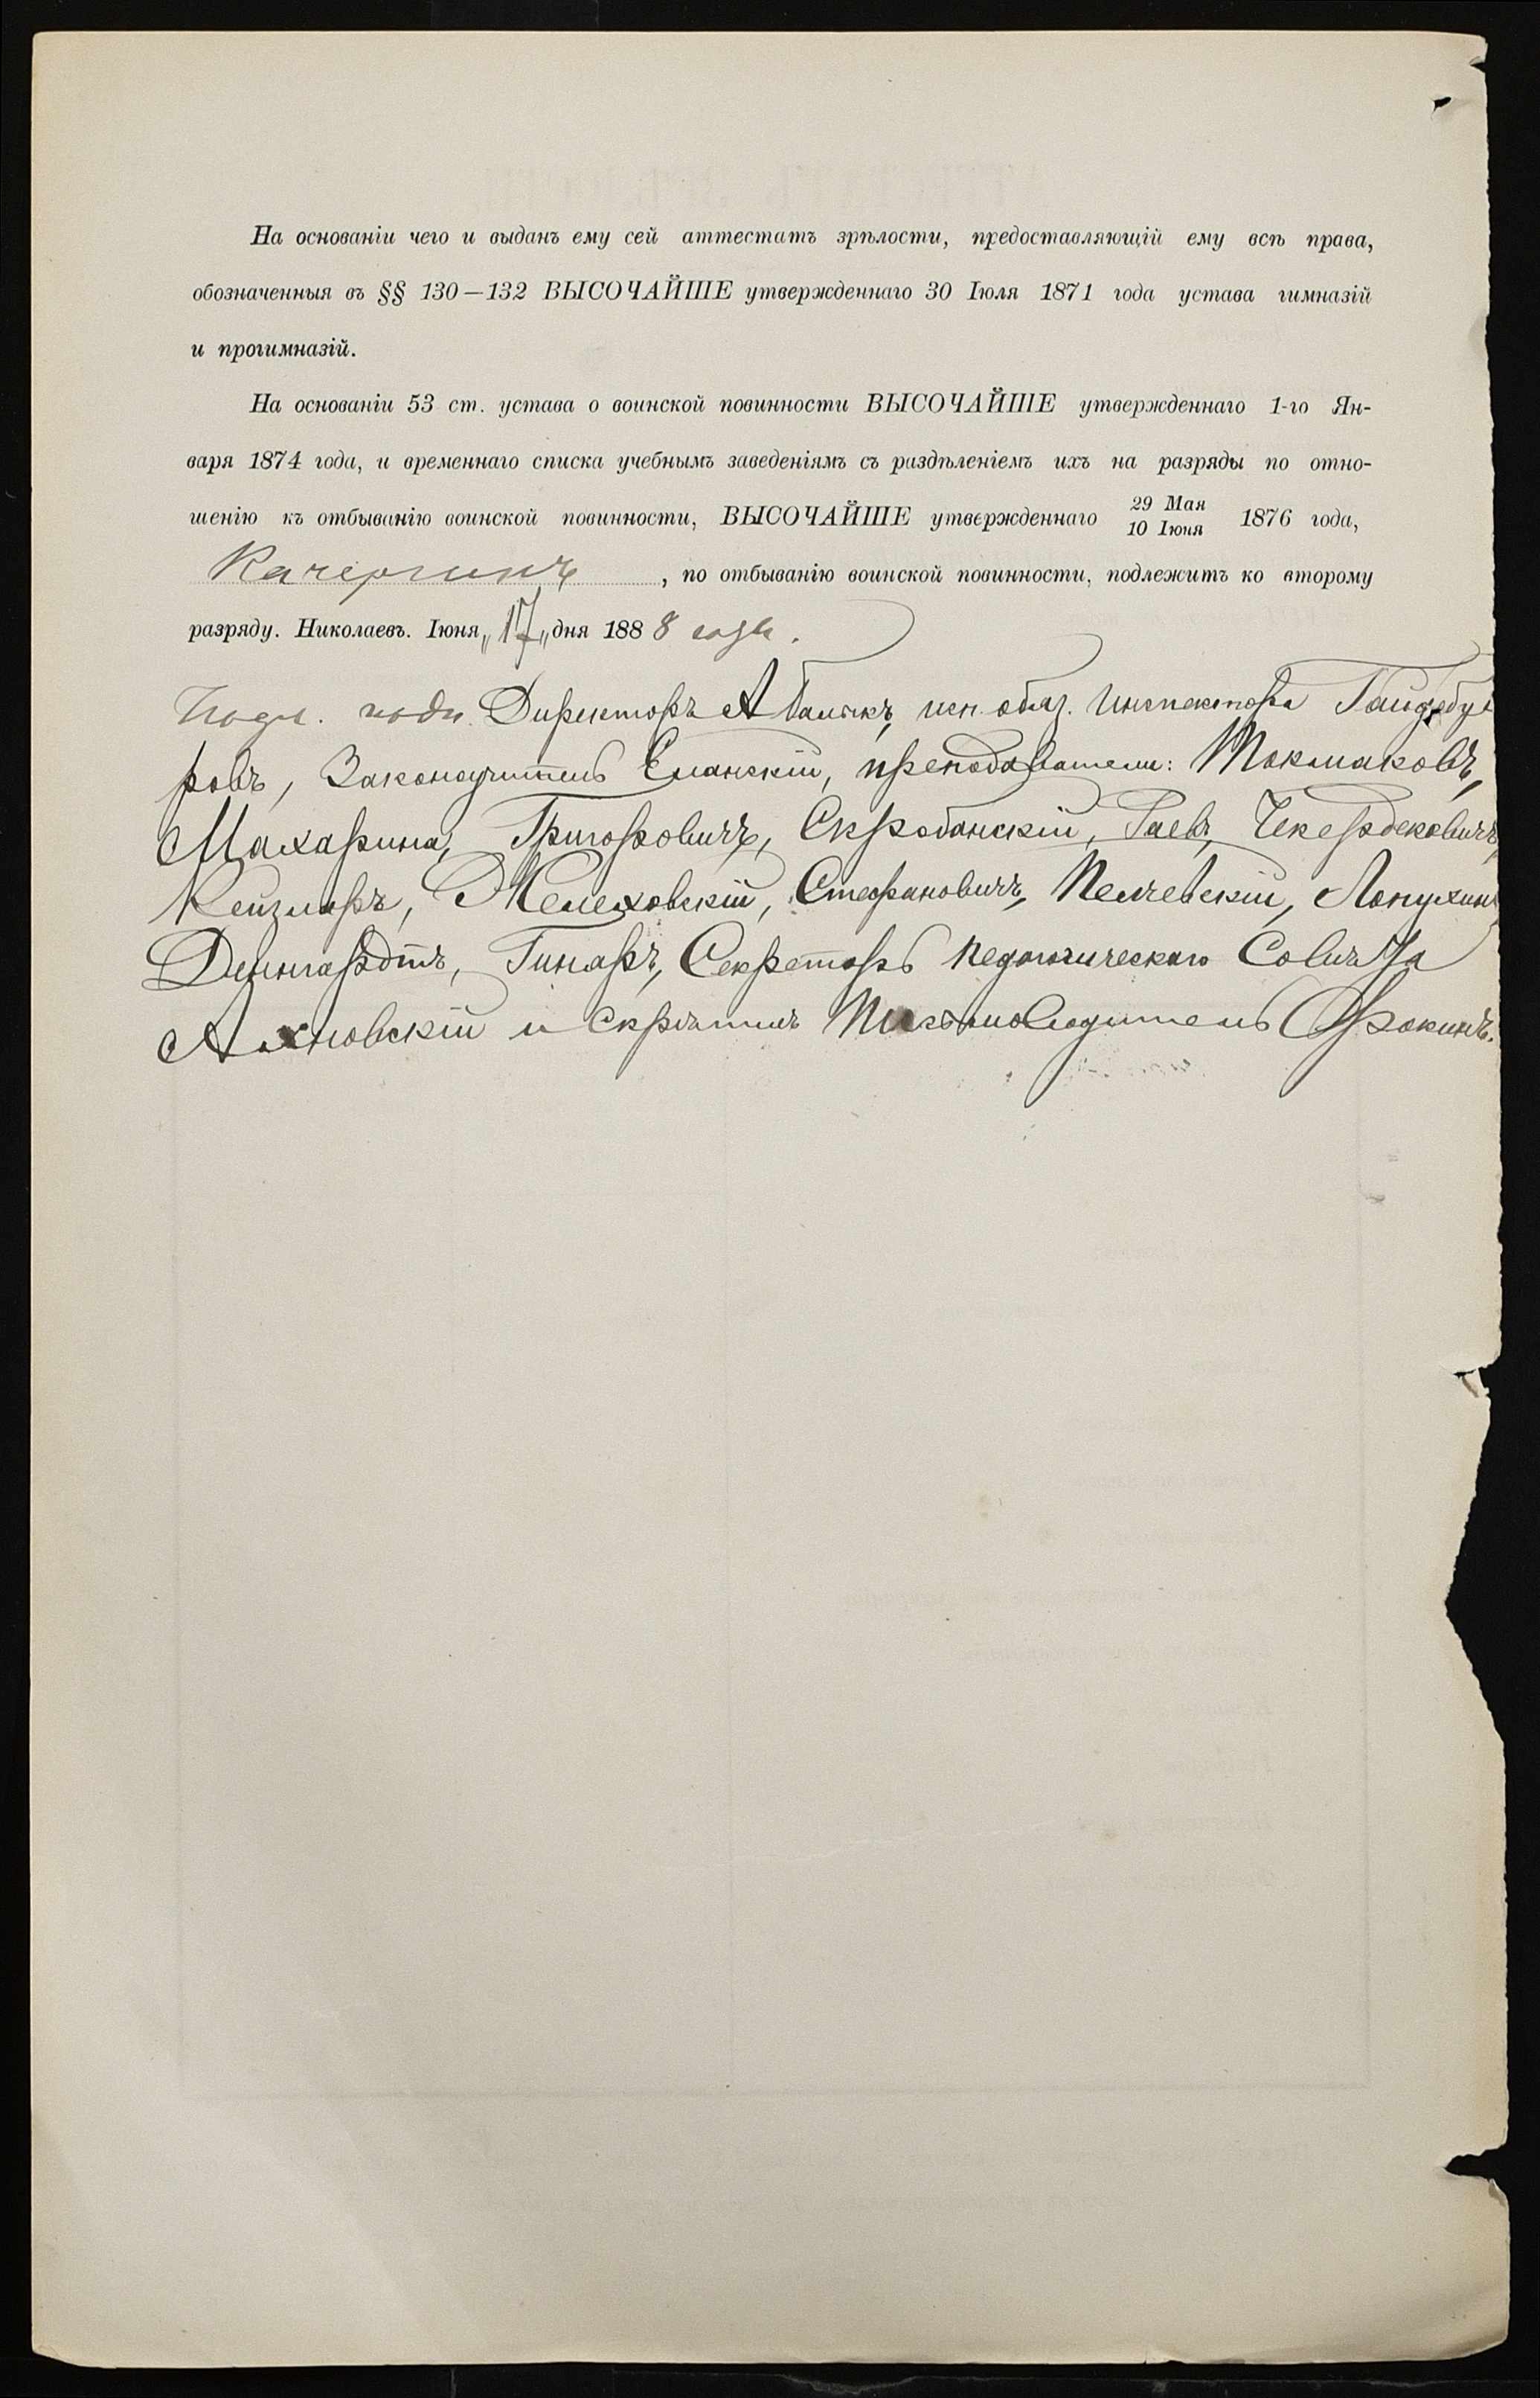 На основаніи чего и выданъ ему сей аттестатъ зрѣлости, предоставляющій ему всѣ права,
обозначенныя въ §§ 130—132 ВЫСОЧАЙШЕ утвержденнаго 30 Іюля 1871 года устава гимназій
и прогимназій.
На основаніи 53 ст. устава о воинской повинности ВЫСОЧАЙШЕ утвержденнаго 1-го Ян-
варя 1874 года, и временнаго списка учебнымъ заведеніямъ съ раздѣленіемъ ихъ на разряды по отно-
шенію къ отбыванію воинской повинности, ВЫСОЧАЙШЕ утвержденнаго 29 Мая 10 Іюня 1876 года,
Качергинъ, по отбыванію воинской повинности, подлежитъ ко второму
разряду. Николаевъ. Іюня „17„ дня 1888 года.
Директоръ А исп. обяз. Инспектора Гайдебу
ровъ, Законоучитель Еланскій, преподаватели: Токмаковъ,
Махарина, Григоровичъ, Скробанскій, Раевъ,
Кейзларъ, Мелеховскій, Стефановичъ, Пелчевскій, Лопухинъ
Деннгардтъ, Гинаръ, Секретарь Педагогическаго Совѣта
и скрѣпилъ Письмоводитель Фокинъ.